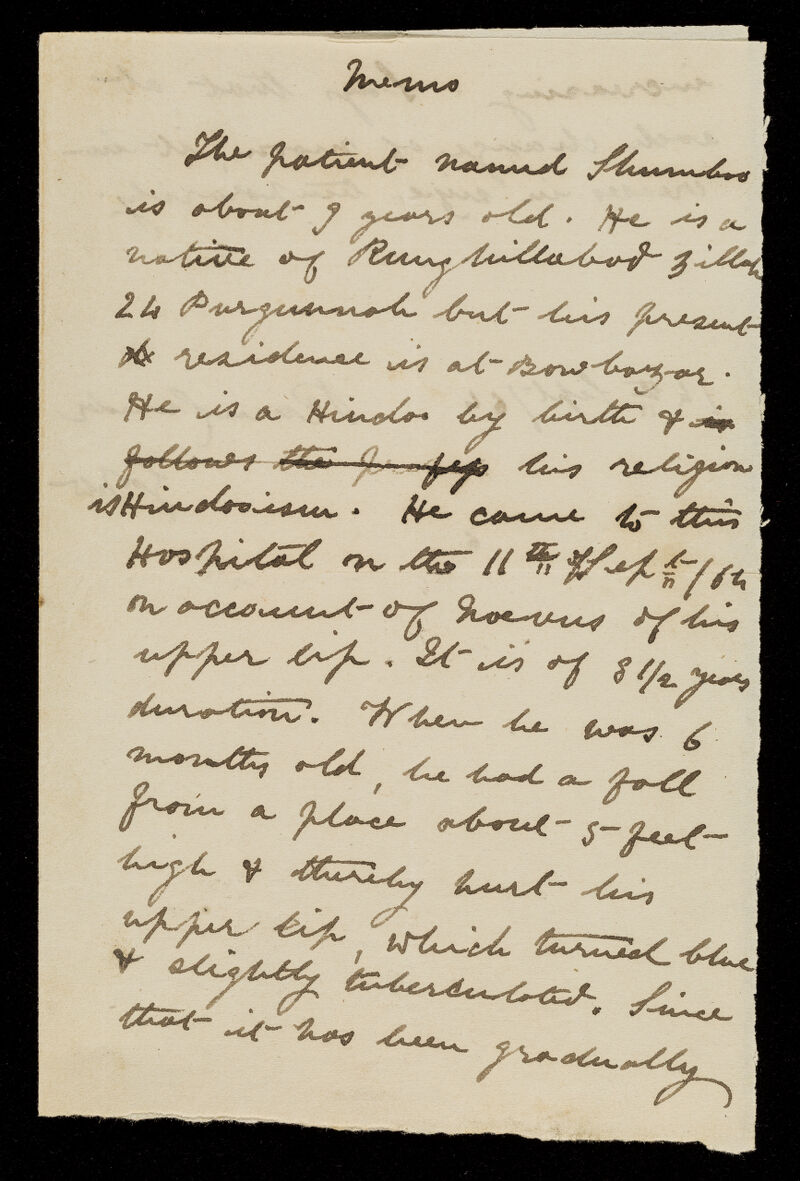 Memo
The patient named Shumboo
is about 9 years old. He is a
native of Runghillabad zillah
24 Purgunnah but his present
residence is at Bowbazar.
He is a Hindoo by birth & is
follows the profess his religion
is Hindooism. He came to this
Hospital on the 11th of Sept /
on account of Noevus of his
upper lip. It is of 8 1/2 years
duration. When he was 6
months old, he had a fall
from a place about 5 feet
high & thereby hurt his
upper lip, which turned blue
& slightly tuberculated. Since
that it has been gradually